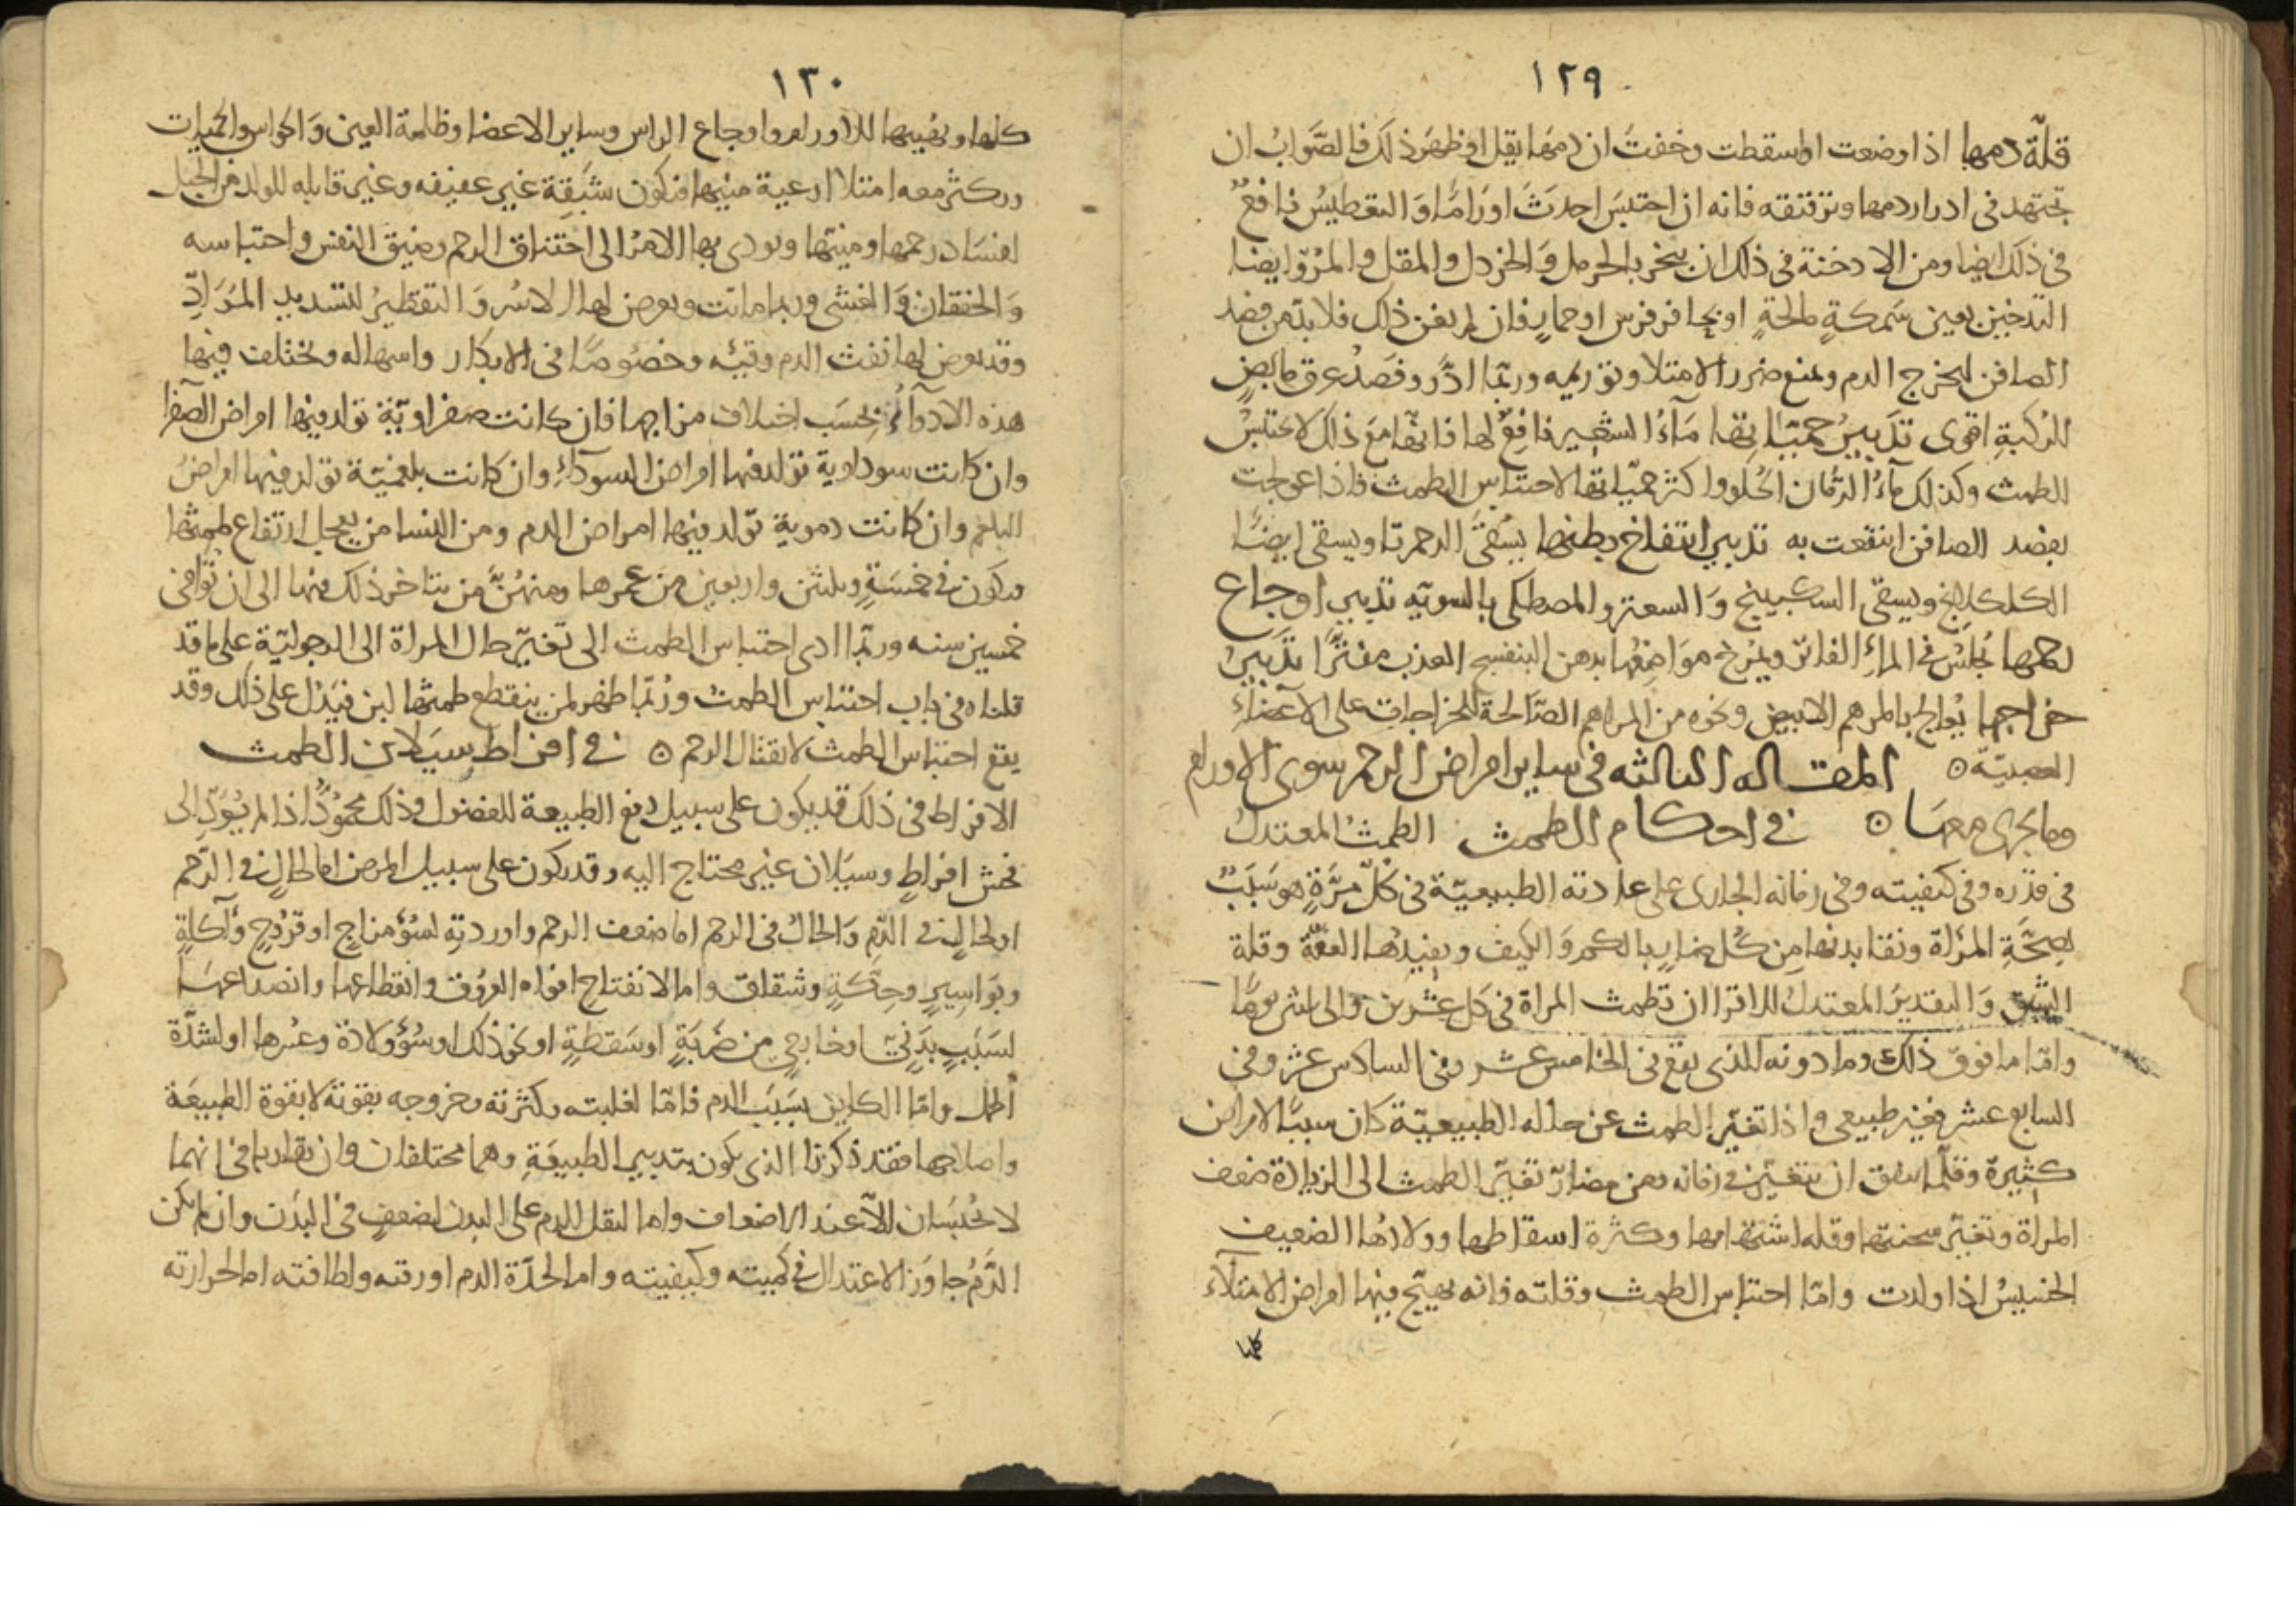 ١٢٩
قلّة دمها اذا وضعت او اسقطت وخفت ان دمها يقل او ظهر ذلك فالصواب ان
تجتهد في ادرار دمها وترقيقه فانه ان احتبس احدث اوراما والتعطيس نافع
في ذلك ايضا ومن الادخنة في ذلك ان يبخر بالحرمل والخردل والمقل والمر وايضا
التدخين بعين سمكة مالحة او بحافر فرس او حمار فان لم يغن ذلك فلا بد من فصد
الصافن ليخرج الدم ويمنع ضرر الامتلا وتوريمه وربما ادر وفصد عرق مابض
الركبة اقوى تدبير حمياتها ماء الشعير نافع لها فانها مع ذلك لا يحتبس
الطمث وكذلك ماء الرمان الحلو واكثر حمياتها لاحتباس الطمث فاذا عولجت
بفصد الصافن انتفعت به تدبير انتفاخ بطنها يسقى الدحمرتا ويسقى ايضا
الكلكلانج ويسقى السكبينج والسعتر والمصطكى بالسويه تدبير اوجاع
رحمها تجلس في الماء الفاتر ويمرخ مواضعها بدهن البنفسج العذب مفترا تدبير
خراجها يعالج بالمرهم الابيض ونحوه من المراهم الصالحة للخراجات على الاعضاء
العصبية ۞ المقاله الثالثه في ساير امراض الرحم سوى الاورام
وما يجرى معها ۞ في احكام الطمث الطمث المعتدل
في قدره وفي كيفيته وفي زمانه الجارى على عادته الطبيعية في كل مرة هو سبب
لصحة المراة ونقا بدنها من كل ضار بالكم والكيف ويفيدها العفة وقلة
الشبق والتقدير المعتدل للاقرا ان تطمث المراة في كل عشرين والى ثلثين يوما
واما ما فوق ذلك وما دونه الذي يقع في الخامس عشر وفي السادس عشر وفي
السابع عشر فغير طبيعي واذا تغير الطمث عن حاله الطبيعية كان سببا لامراض
كثيرة وقلما يتفق ان يتغير في زمانه ومن مضار تغير الطمث الى الزيادة ضعف
المراة وتغير سحنتها وقله اشتهائها وكثرة اسقاطها وولادها الضعيف
الخسيس اذا ولدت واما احتباس الطمث وقلته فانه يهيج فيها امراض الامتلاء
كلها
١٣٠
كلها ويهييها للاورام واوجاع الراس وساير الاعضا وظلمة العين والحواس والحميات
ويكثر معه امتلا اوعية منيها فتكون شبقة غير عفيفه وغير قابله للولد من الحبل
لفساد رحمها ومنيها ويودى بها الامر الى اختناق الرحم وضيق النفس واحتباسه
والخفقان والغشى وربما ماتت ويعرض لها الاسر والتقطير لتسديد المواد
وقد يعرض لها نفث الدم وقيئه وخصوصا في الابكار واسهاله ويختلف فيها
هذه الادوآء بحسب اختلاف مزاجها فان كانت صفراوية تولد فيها امراض الصفرا
وان كانت سوداوية تولد فيها امراض السوداء وان كانت بلغمية تولد فيها امراض
البلغم وان كانت دموية تولد فيها امراض الدم ومن النسا من يعجل ارتفاع طمثها
فيكون في خمسة وثلثين واربعين من عمرها ومنهن من يتاخر ذلك فيها الى ان توافى
خمسين سنه وربما ادى احتباس الطمث الى تغير حال المراة الى الرجولية على ما قد
قلناه في باب احتباس الطمث وربما ظهر لمن ينقطع طمثها لبن فيدل على ذلك وقد
يقع احتباس الطمث لانقتال الرحم ۞ في افراط سيلان الطمث
الافراط في ذلك قد يكون على سبيل دفع الطبيعة للفضول وذلك محمود اذا لم يؤد الى
فحش افراط وسيلان غير محتاج اليه وقد يكون على سبيل المرض اما لحال في الرحم
او لحال في الدم والحال في الرحم اما ضعف الرحم واوردته لسؤ مزاج او قروح واكلة
وبواسير وحكة وشقاق واما الانفتاح افواه العروق وانقطاعها وانصداعها
لسبب بدنى او خارجى من ضربة او سقطة او نحو ذلك او سؤ ولادة وعسرها او لشدة
الحمل واما الكاين بسبب الدم فاما لغلبته وكثرته وخروجه بقوته لا بقوة الطبيعة
واصلاحها فقد ذكرنا الذى يكون بتدبير الطبيعة وهما مختلفان وان تقاربا في انهما
لا يحبسان الا عند الاضعاف واما لثقل الدم على البدن لضعف في البدن وان لم يكن
الدم جاوز الاعتدال في كميته وكيفيته واما لحدة الدم او رقته ولطافته اما لحرارته